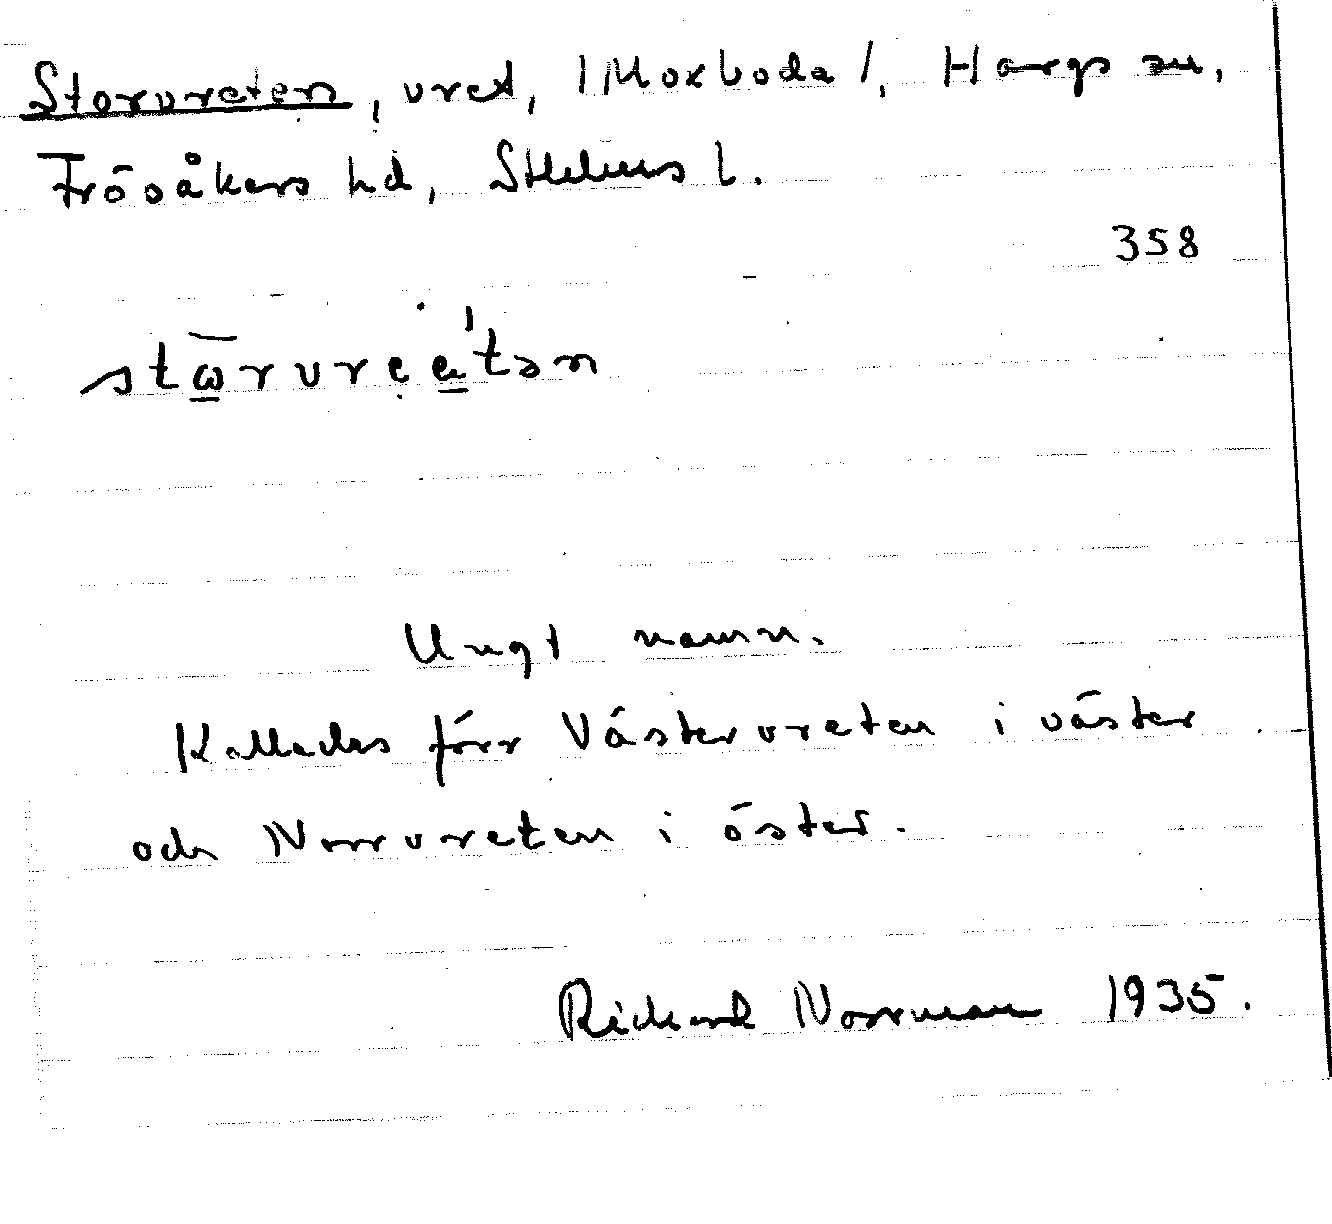 Storvreten, vret, /Morboda/, Hargs sn,
Frösåkers hd, Sthlms l.
358
Ungt namn.
Kallades förr Västervreten i väster
och Norrvreten i öster.
Rickard Norrman 1935.